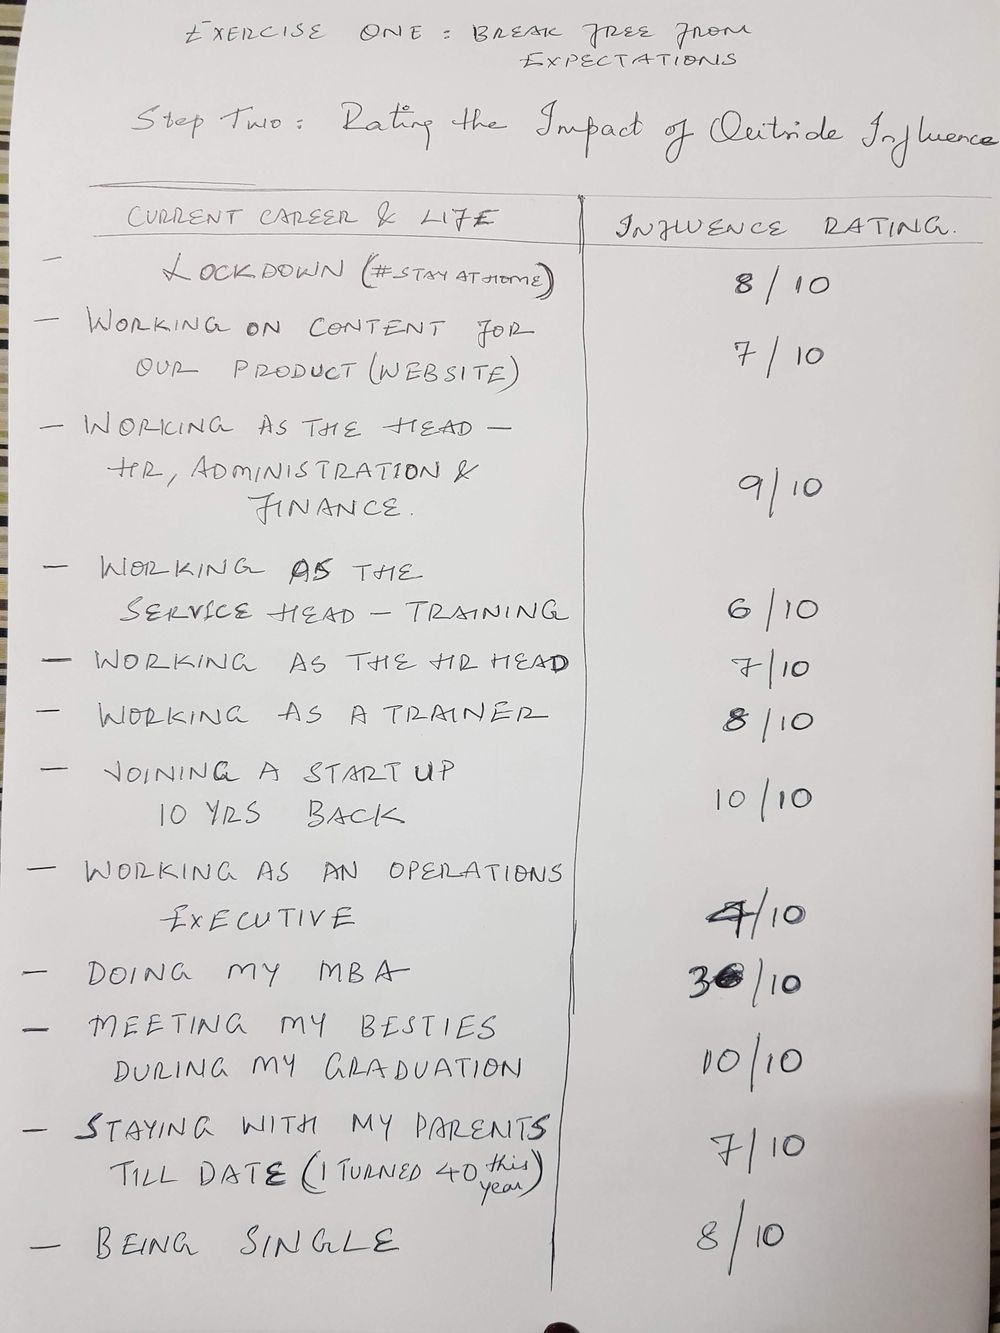 EXERCISE ONE : BREAK FREE FROM
EXPECTATIONS
Step Two: Rating the Impact of Outside Influence
CURRENT CAREER & LIFE
INFLUENCE RATING.
- LOCKDOWN (#STAYATHOME)
8/10
- WORKING ON CONTENT FOR
OUR PRODUCT (WEBSITE)
7/10
- WORKING AS THE HEAD -
HR, ADMINISTRATION &
FINANCE.
9/10
- WORKING AS THE
SERVICE HEAD - TRAINING
6/10
- WORKING AS THE HR HEAD
7/10
- WORKING AS A TRAINER
8/10
- JOINING A START UP
10 YRS BACK
10/10
- WORKING AS AN OPERATIONS
EXECUTIVE
/10
- DOING MY MBA
3/10
- MEETING MY BESTIES
DURING MY GRADUATION
10/10
- STAYING WITH MY PARENTS
TILL DATE (I TURNED 40 this year)
7/10
- BEING SINGLE
8/10